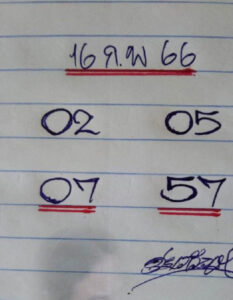 16 ก.พ 66
02 05
07 57